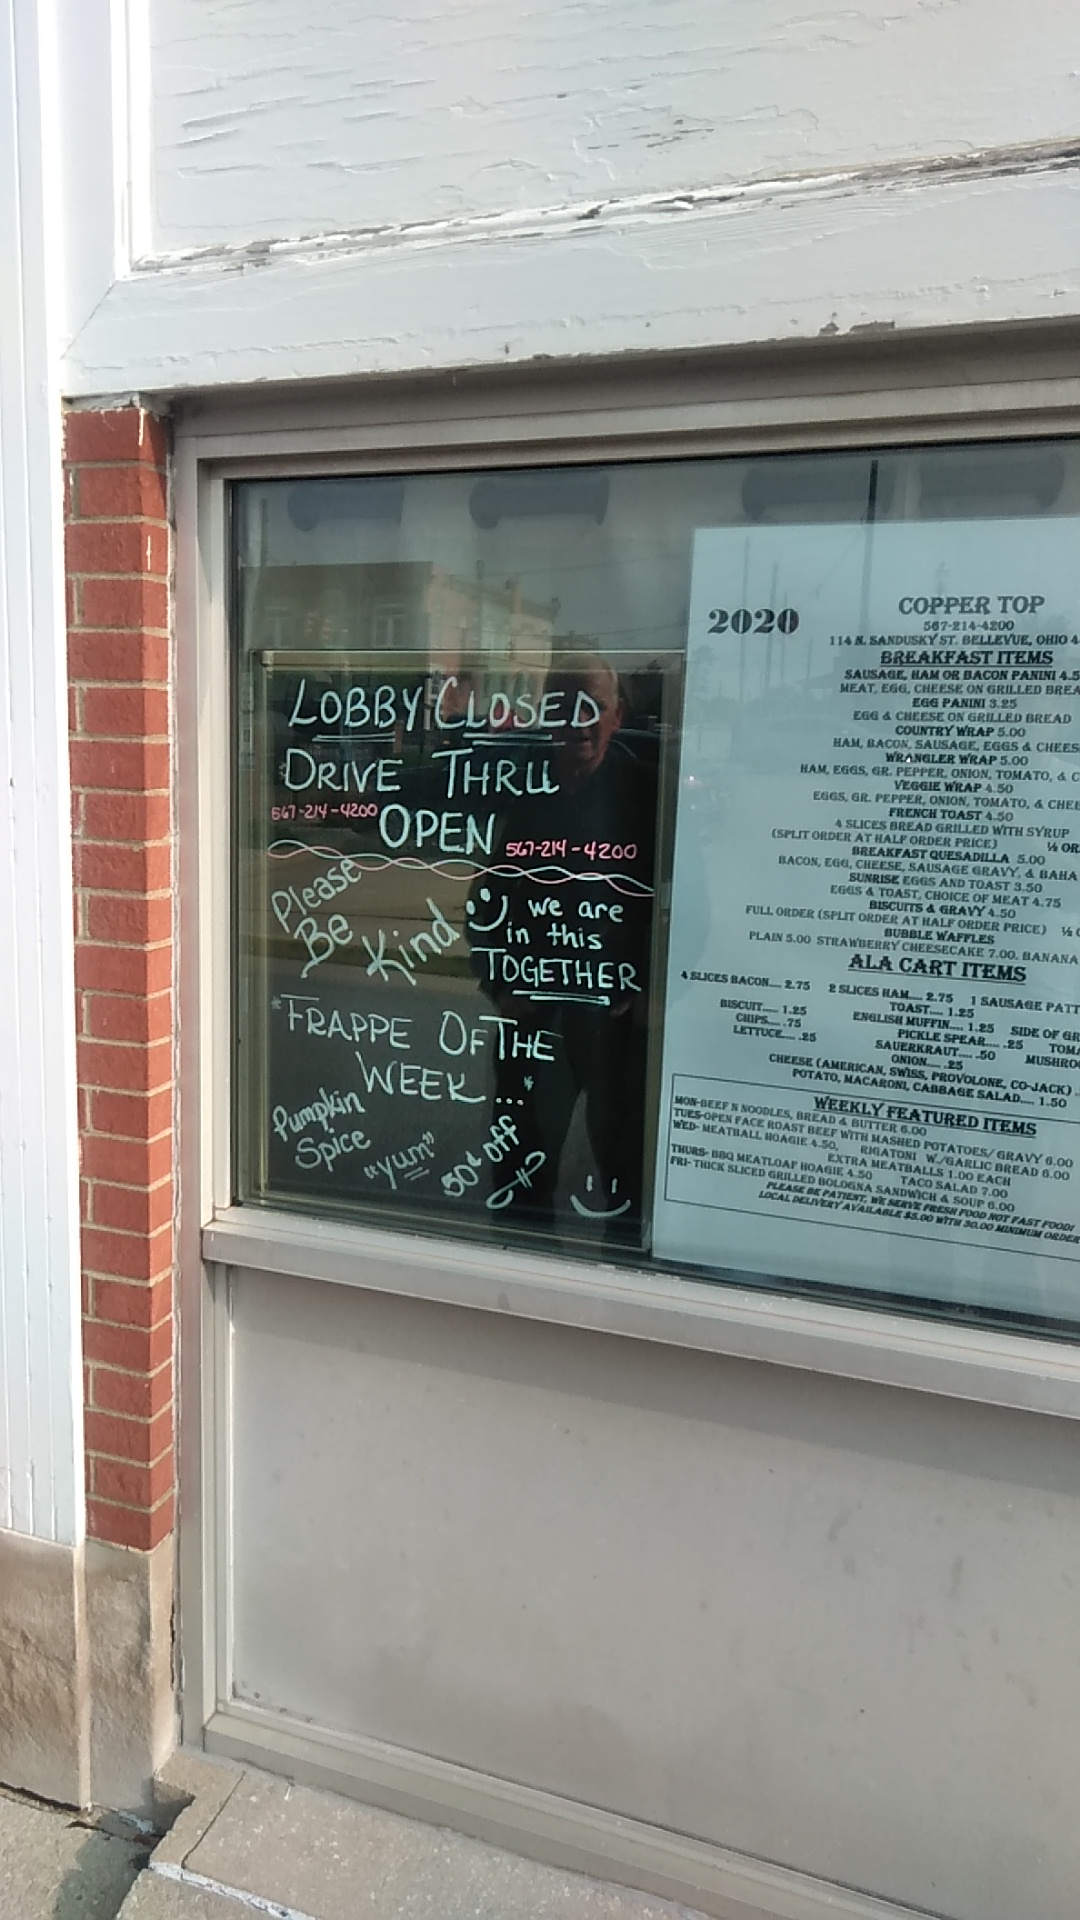 LOBBY CLOSED
DRIVE THRU
567-214-4200 OPEN 567-214-4200
Please
Be
Kind
we are
in this
TOGETHER
*FRAPPE OF THE
WEEK...*
Pumpkin
Spice
"yum"
50¢ off
2020
COPPER TOP
567-214-4200
114 N. SANDUSKY ST. BELLEVUE, OHIO 4
BREAKFAST ITEMS
SAUSAGE, HAM OR BACON PANINI 4.5
MEAT, EGG, CHEESE ON GRILLED BREA
EGG PANINI 3.25
EGG & CHEESE ON GRILLED BREAD
COUNTRY WRAP 5.00
HAM, BACON, SAUSAGE, EGGS & CHEES
WRANGLER WRAP 5.00
HAM, EGGS, GR. PEPPER, ONION, TOMATO, & C
VEGGIE WRAP 4.50
EGGS, GR. PEPPER, ONION, TOMATO, & CHEE
FRENCH TOAST 4.50
4 SLICES BREAD GRILLED WITH SYRUP
(SPLIT ORDER AT HALF ORDER PRICE) ½ OR
BREAKFAST QUESADILLA 5.00
BACON, EGG, CHEESE, SAUSAGE GRAVY, & BAHA
SUNRISE EGGS AND TOAST 3.50
EGGS & TOAST, CHOICE OF MEAT 4.75
BISCUITS & GRAVY 4.50
FULL ORDER (SPLIT ORDER AT HALF ORDER PRICE) ½
BUBBLE WAFFLES
PLAIN 5.00 STRAWBERRY CHEESECAKE 7.00. BANANA
ALA CART ITEMS
4 SLICES BACON.... 2.75 2 SLICES HAM.... 2.75 1 SAUSAGE PATT
BISCUIT.... 1.25 TOAST.... 1.25
CHIPS.... .75 ENGLISH MUFFIN.... 1.25 SIDE OF GR
LETTUCE.... .25 PICKLE SPEAR.... .25 TOMA
SAUERKRAUT.... .50 MUSHROO
ONION.... .25
CHEESE (AMERICAN, SWISS, PROVOLONE, CO-JACK) .
POTATO, MACARONI, CABBAGE SALAD.... 1.50
WEEKLY FEATURED ITEMS
MON-BEEF N NOODLES, BREAD & BUTTER 6.00
TUES-OPEN FACE ROAST BEEF WITH MASHED POTATOES/ GRAVY 6.00
WED- MEATBALL HOAGIE 4.50, RIGATONI W/GARLIC BREAD 6.00
EXTRA MEATBALLS 1.00 EACH
THURS- BBQ MEATLOAF HOAGIE 4.50 TACO SALAD 7.00
FRI- THICK SLICED GRILLED BOLOGNA SANDWICH & SOUP 6.00
PLEASE BE PATIENT, WE SERVE FRESH FOOD NOT FAST FOOD!
LOCAL DELIVERY AVAILABLE $5.00 WITH 30.00 MINIMUM ORDER